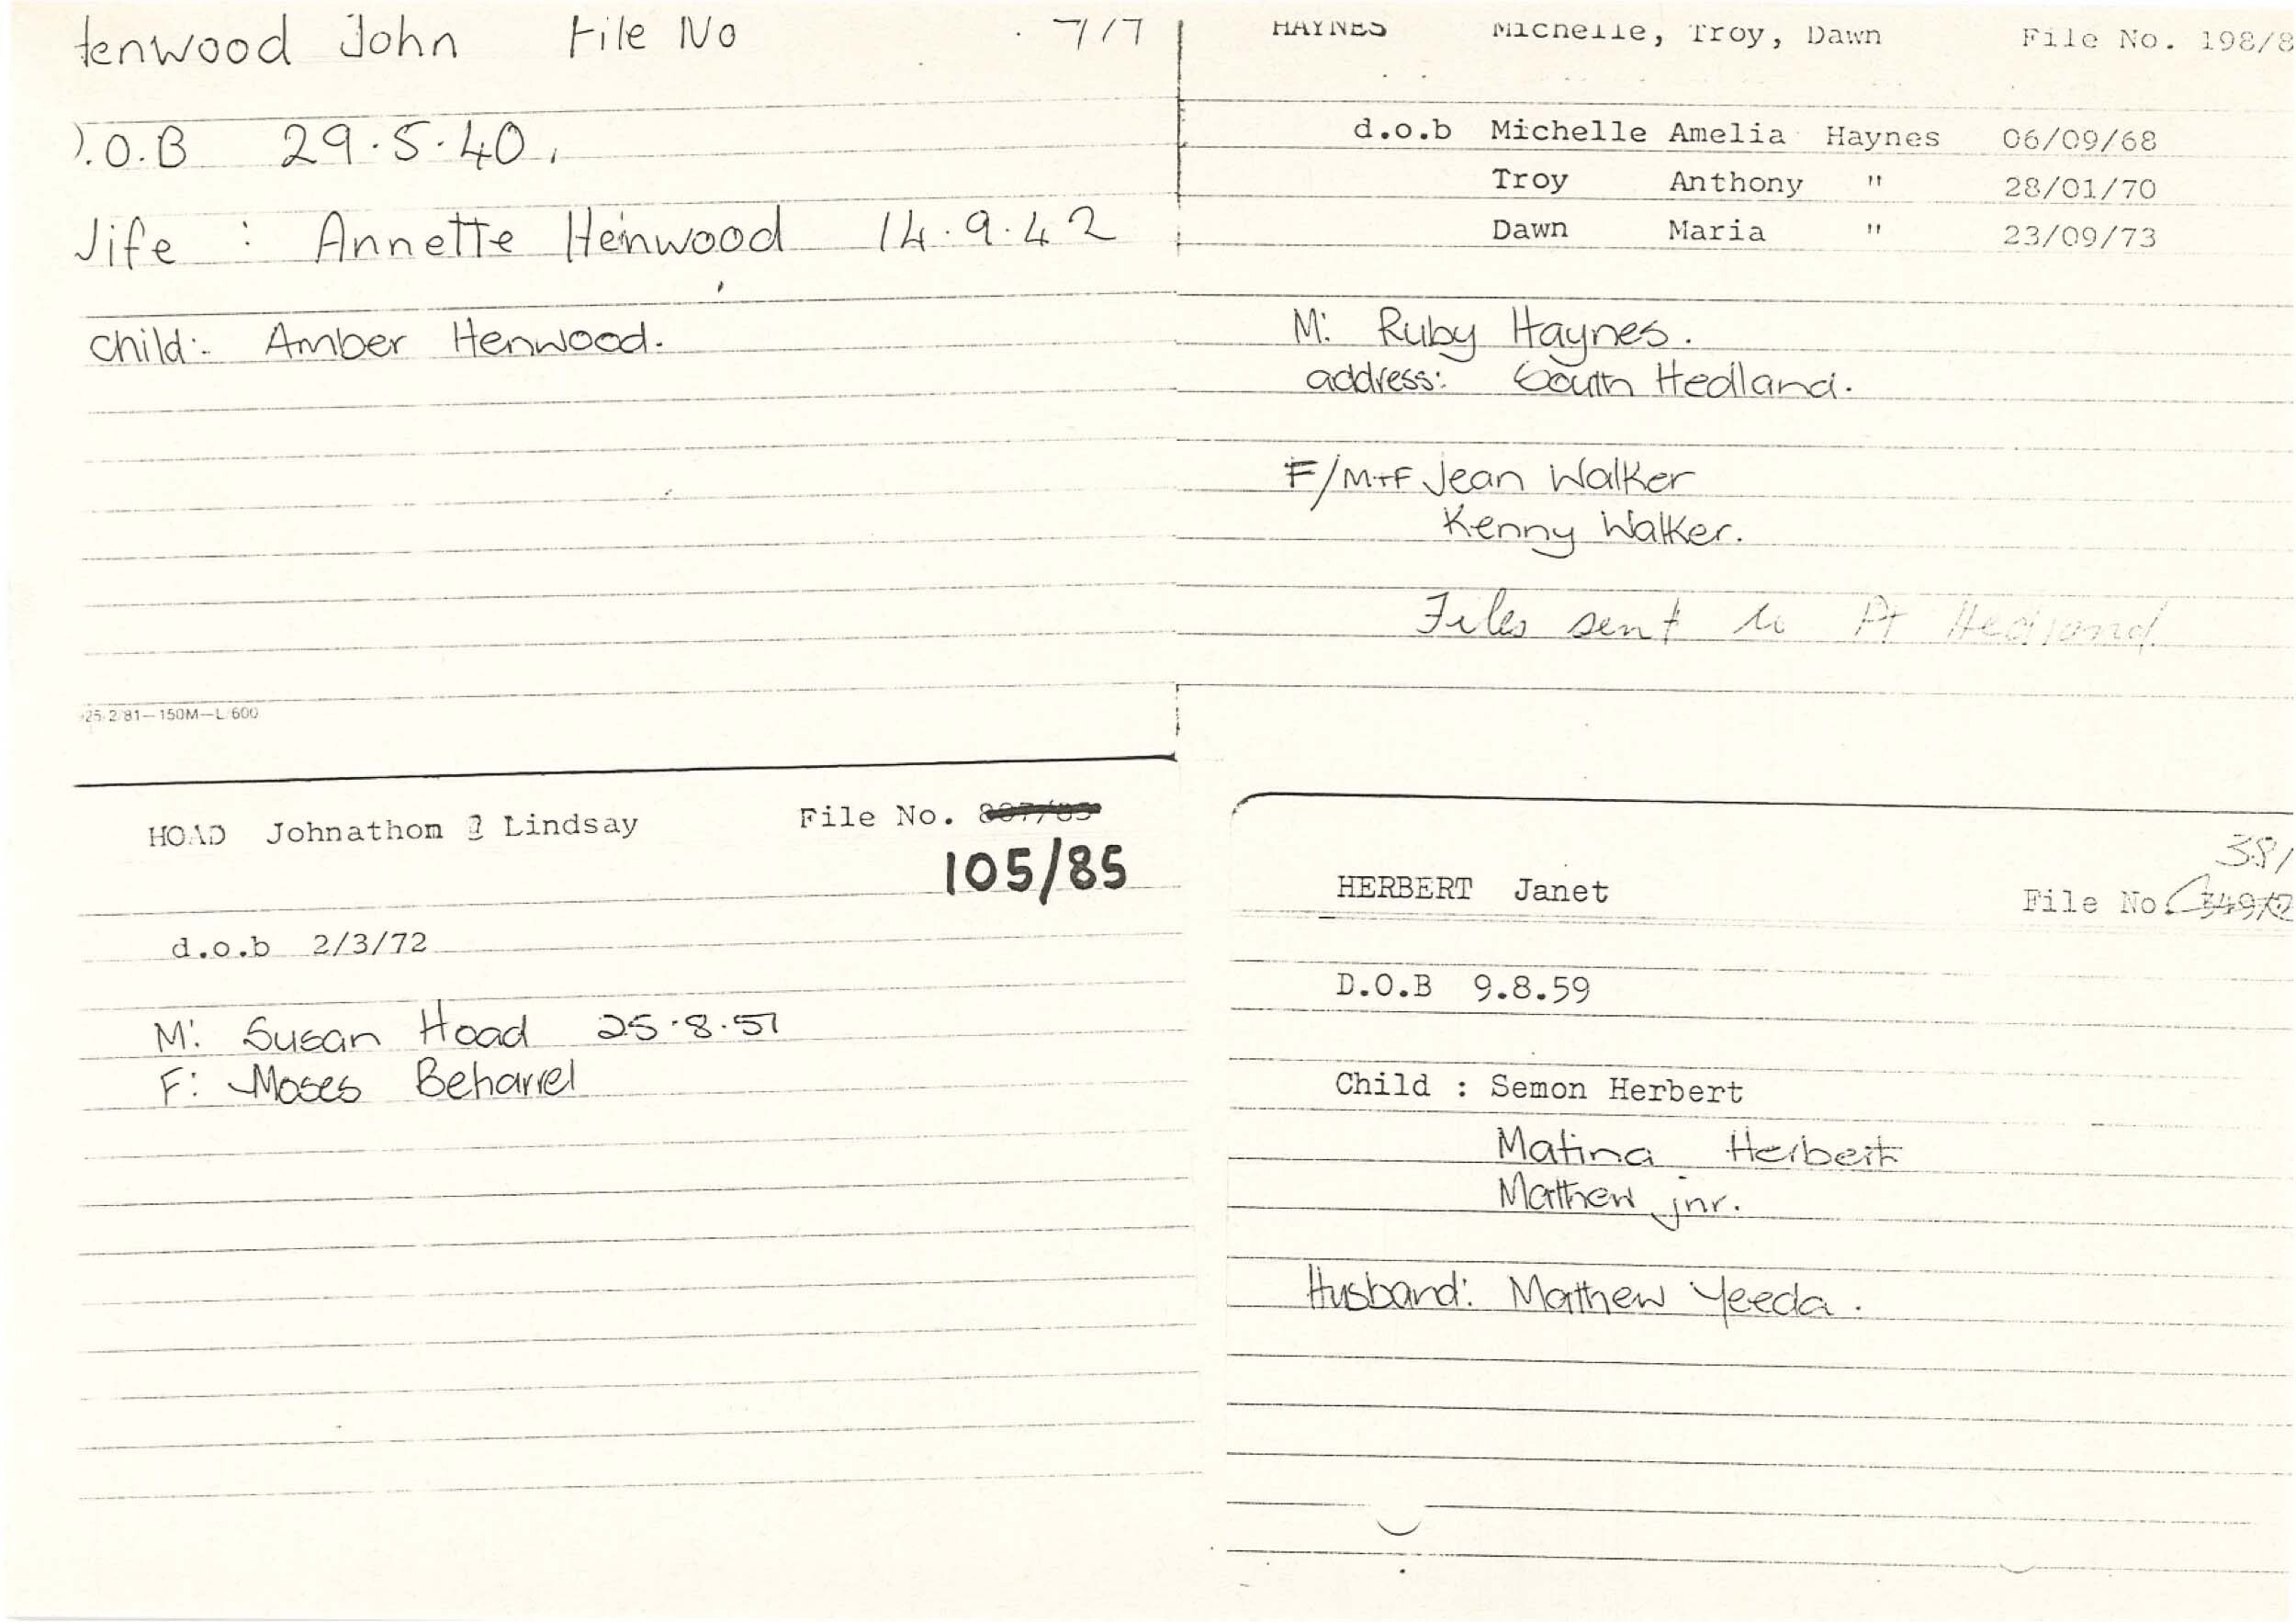 Henwood John File No 7/7
D.O.B 29.5.40.
Wife : Annette Henwood 14.9.42
Child:- Amber Henwood.
925/2/81-150M-L/600
HAYNES Michelle, Troy, Dawn File No. 198/8
d.o.b Michelle Amelia Haynes 06/09/68
Troy Anthony " 28/01/70
Dawn Maria " 23/09/73
M: Ruby Haynes.
address: South Hedland.
F/M+F Jean Walker
Kenny Walker.
Files sent to Pt Hedland
HOAD Johnathom Lindsay File No.
105/85
d.o.b 2/3/72
M: Susan Hoad 25.8.51
F: Moses Beharrel
381
HERBERT Janet File No. 349/2
D.O.B 9.8.59
Child : Semon Herbert
Matina Herbert
Matthew jnr.
Husband: Matthew Yeeda.